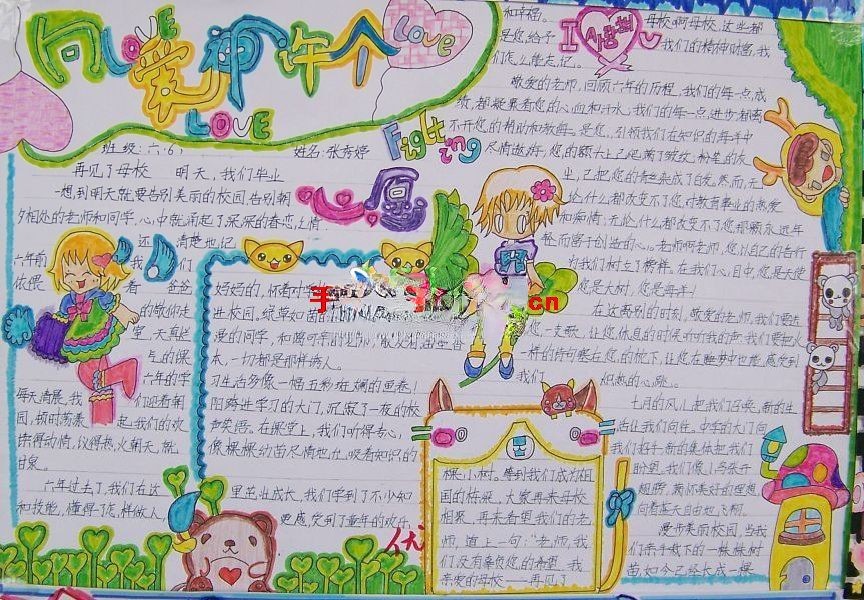 向爱神许个愿
LOVE
LOVE
LOVE
Fighting
I
班级:六(6)
姓名:张秀婷
再见了母校
明天,我们毕业
一想到明天就要告别美丽的校园,告别朝
夕相处的老师和同学,心中就涌起了深深的眷恋之情
还
清楚地记
六年前
我
们
依偎
着
爸爸
的敬仰走
室,天真烂
与的课
六年的学
每天清晨,我
们迎着朝
园,顿时荡漾
起我们的欢
乐得动情,议得热火朝天,就
甘泉。
六年过去了,我们在这
里茁壮成长,我们学到了不少知
和技能,懂得了怎样做人
更感受到了童年的欢乐
好好的,怀着
进校园,绿草如茵的
漫的同学,和蔼可亲的老师,散发着油墨香
本,一切都是那样诱人。
习生活多像一幅五彩斑斓的画卷!
阳跨进学习的大门,沉寂了一夜的校
和笑语。在课堂上,我们听得专心,
像棵棵幼苗尽情地允吸着知识的
和幸福。
是您,给予
们怎么能忘记。
母校啊母校,这些都
我们的精神财富,我
敬爱的老师,回顾六年的历程,我们的每一点成
绩,都凝聚着您的心血和汗水;我们的每一点进步都离
不开您的帮助和教诲。是您,引领我们在知识的海洋中
尽情遨游;您的额头上已爬满了皱纹,粉笔的灰
尘,已把您的青丝染成了白发。然而,无
论什么都改变不了您对教育事业的热爱
和痴情;无论什么都改变不了您那颗永远年
轻而富于创造的心。老师啊老师,您以自己的言行
为我们树立了榜样。在我们心目中,您是天使
您是大树,您是海洋!
在这离别的时刻,敬爱的老师,我们要送
您一支歌,让您休息的时候听听我的声;我们要把火
一样的诗句塞在您的枕下,让您在睡梦中也能感受到
我们
炽热的心跳。
七月的风儿把我们召唤,新的生
活让我们向往。中学的大门向
我们招手,新的集体把我们
盼望,我们像小鸟张开
翅膀,满怀美好的理想
向着蓝天自由地飞翔。
漫步美丽校园,当我
们亲手栽下的一棵棵树
苗,如今已经长成一棵
棵小树。等到我们成为祖
国的栋梁,大家再来母校
相聚,再来看望我们的老
师,道上一句:“老师,我
们没有辜负您的希望。我
亲爱的母校——再见了
cn